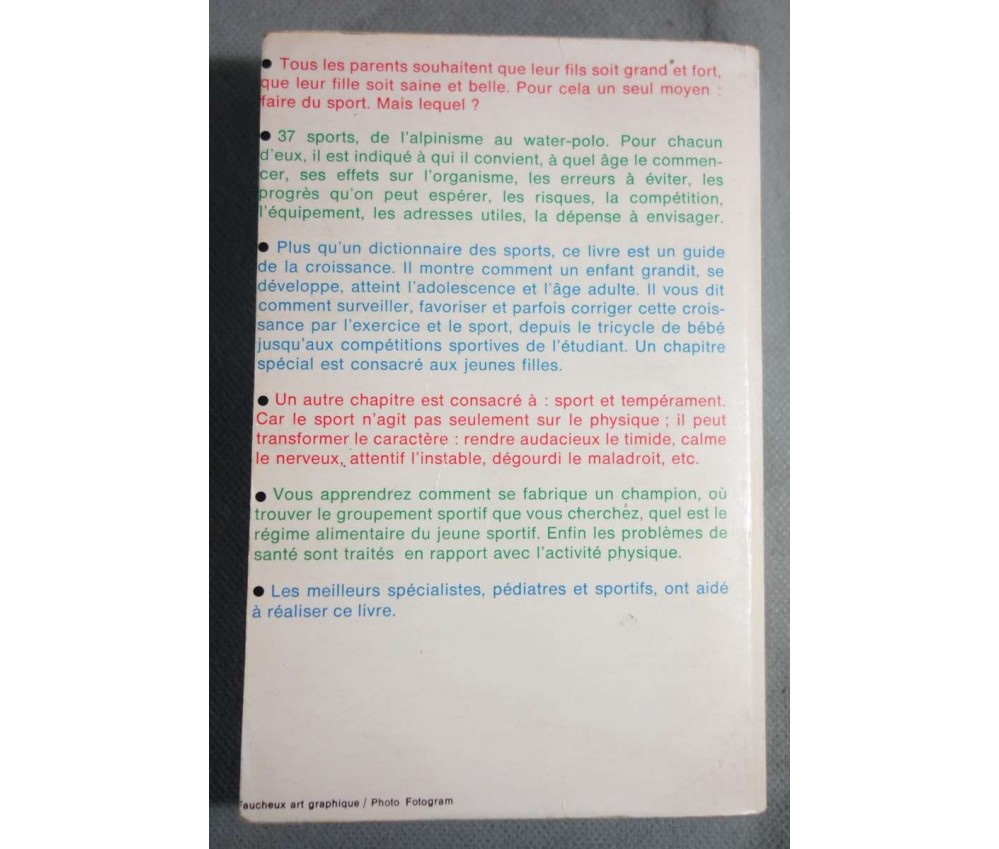 ● Tous les parents souhaitent que leur fils soit grand et fort,
que leur fille soit saine et belle. Pour cela un seul moyen :
faire du sport. Mais lequel ?
● 37 sports, de l'alpinisme au water-polo. Pour chacun
d'eux, il est indiqué à qui il convient, à quel âge le commen-
cer, ses effets sur l'organisme, les erreurs à éviter, les
progrès qu'on peut espérer, les risques, la compétition,
l'équipement, les adresses utiles, la dépense à envisager.
● Plus qu'un dictionnaire des sports, ce livre est un guide
de la croissance. Il montre comment un enfant grandit, se
développe, atteint l'adolescence et l'âge adulte. Il vous dit
comment surveiller, favoriser et parfois corriger cette crois-
sance par l'exercice et le sport, depuis le tricycle de bébé
jusqu'aux compétitions sportives de l'étudiant. Un chapitre
spécial est consacré aux jeunes filles.
● Un autre chapitre est consacré à : sport et tempérament.
Car le sport n'agit pas seulement sur le physique ; il peut
transformer le caractère : rendre audacieux le timide, calme
le nerveux, attentif l'instable, dégourdi le maladroit, etc.
● Vous apprendrez comment se fabrique un champion, où
trouver le groupement sportif que vous cherchez, quel est le
régime alimentaire du jeune sportif. Enfin les problèmes de
santé sont traités en rapport avec l'activité physique.
● Les meilleurs spécialistes, pédiatres et sportifs, ont aidé
à réaliser ce livre.
Faucheux art graphique / Photo Fotogram